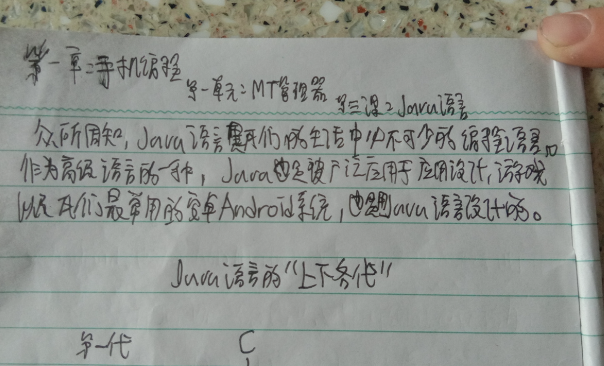 第一章:手机编程
第一单元:MT管理器
第三课:Java语言
众所周知,Java语言是我们的生活中必不可少的编程语言。
作为高级语言的一种,Java也是被广泛应用于应用设计,游戏
以及我们最常用的安卓Android系统,也是Java语言设计的。
Java语言的"上下多代"
第一代 C